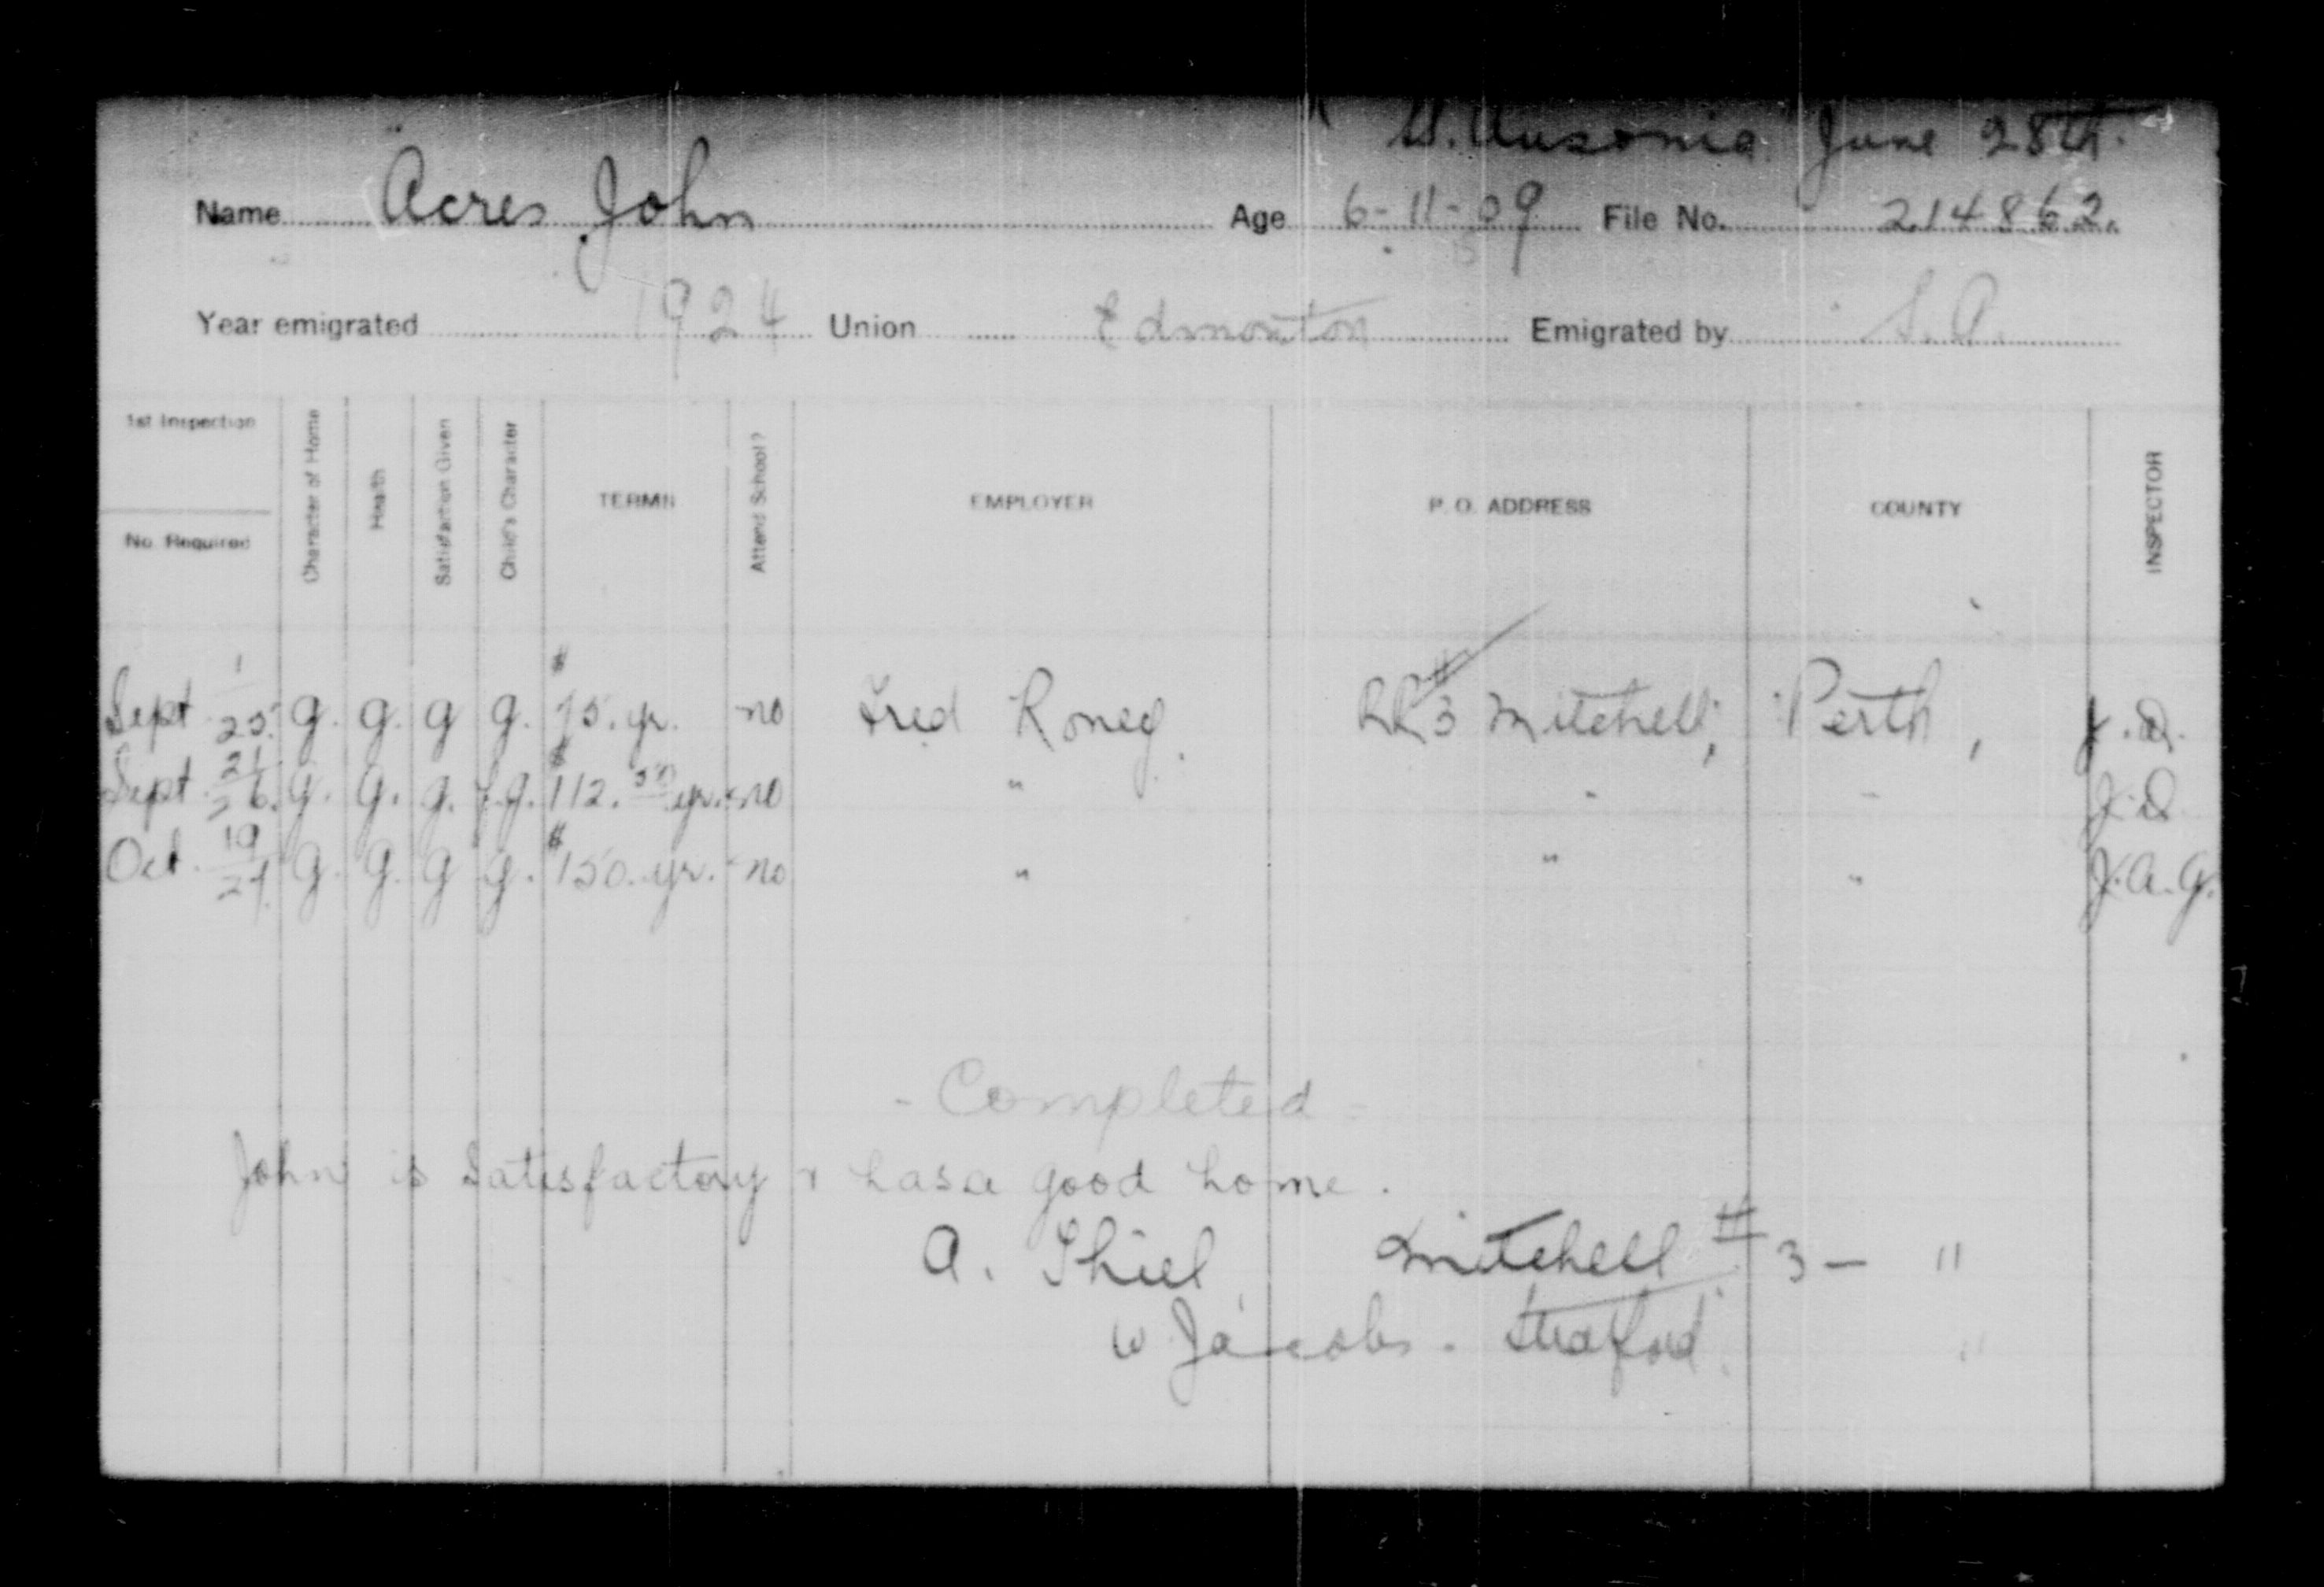 Ausonia June 28th.
Name Acres John Age 6-11-09 File No. 214862.
15
Year emigrated 1924 Union Edmonton Emigrated by S.A.
1st Inspection
No. Required
Character of Home
Health
Satisfaction Given
Child's Character
TERMS
Attend School?
EMPLOYER
P. O. ADDRESS
COUNTY
INSPECTOR
Sept 1/25. g. g. g g. $75. yr. no Fred Roney. RR#3 Mitchell, Perth, J.D.
Sept. 21/26. g. g. g. f.g. $112.50 yr. no " " " J.D.
Oct. 19/27. g. g. g g. $150. yr. no " " " J.A.G.
- Completed -
John is satisfactory & has a good home.
A. Thiel Mitchell #3 — "
W Jacobs. Stratford. "